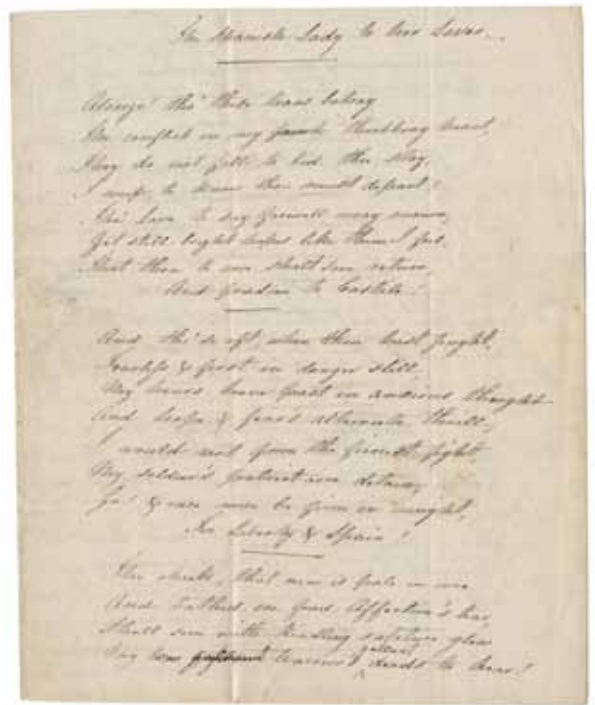 The Spanish Lady to her Lover.
Alonzo! tho' these tears betray
The conflict in my throbbing heart,
They do not fall to bid thee stay,
I weep to know thou must depart!
Tho' love to say farewell may mourn,
Yet still bright hopes like thine I feel,
That thou to me shalt soon return
And freedom to Castile!
And tho' so oft, when thou hast fought,
Fearless & first in danger still
My hours have past in anxious thought
And hope & fear's alternate thrill,
I would not from the fight
My soldier's patriotism detain,
Go! & may now be given in might,
For Liberty & Spain!
The cheek, that now is pale in woe
And bathed in fond Affection's tear
Shall soon with kindling rapture glow
Thy warrior's gallant deeds to hear!